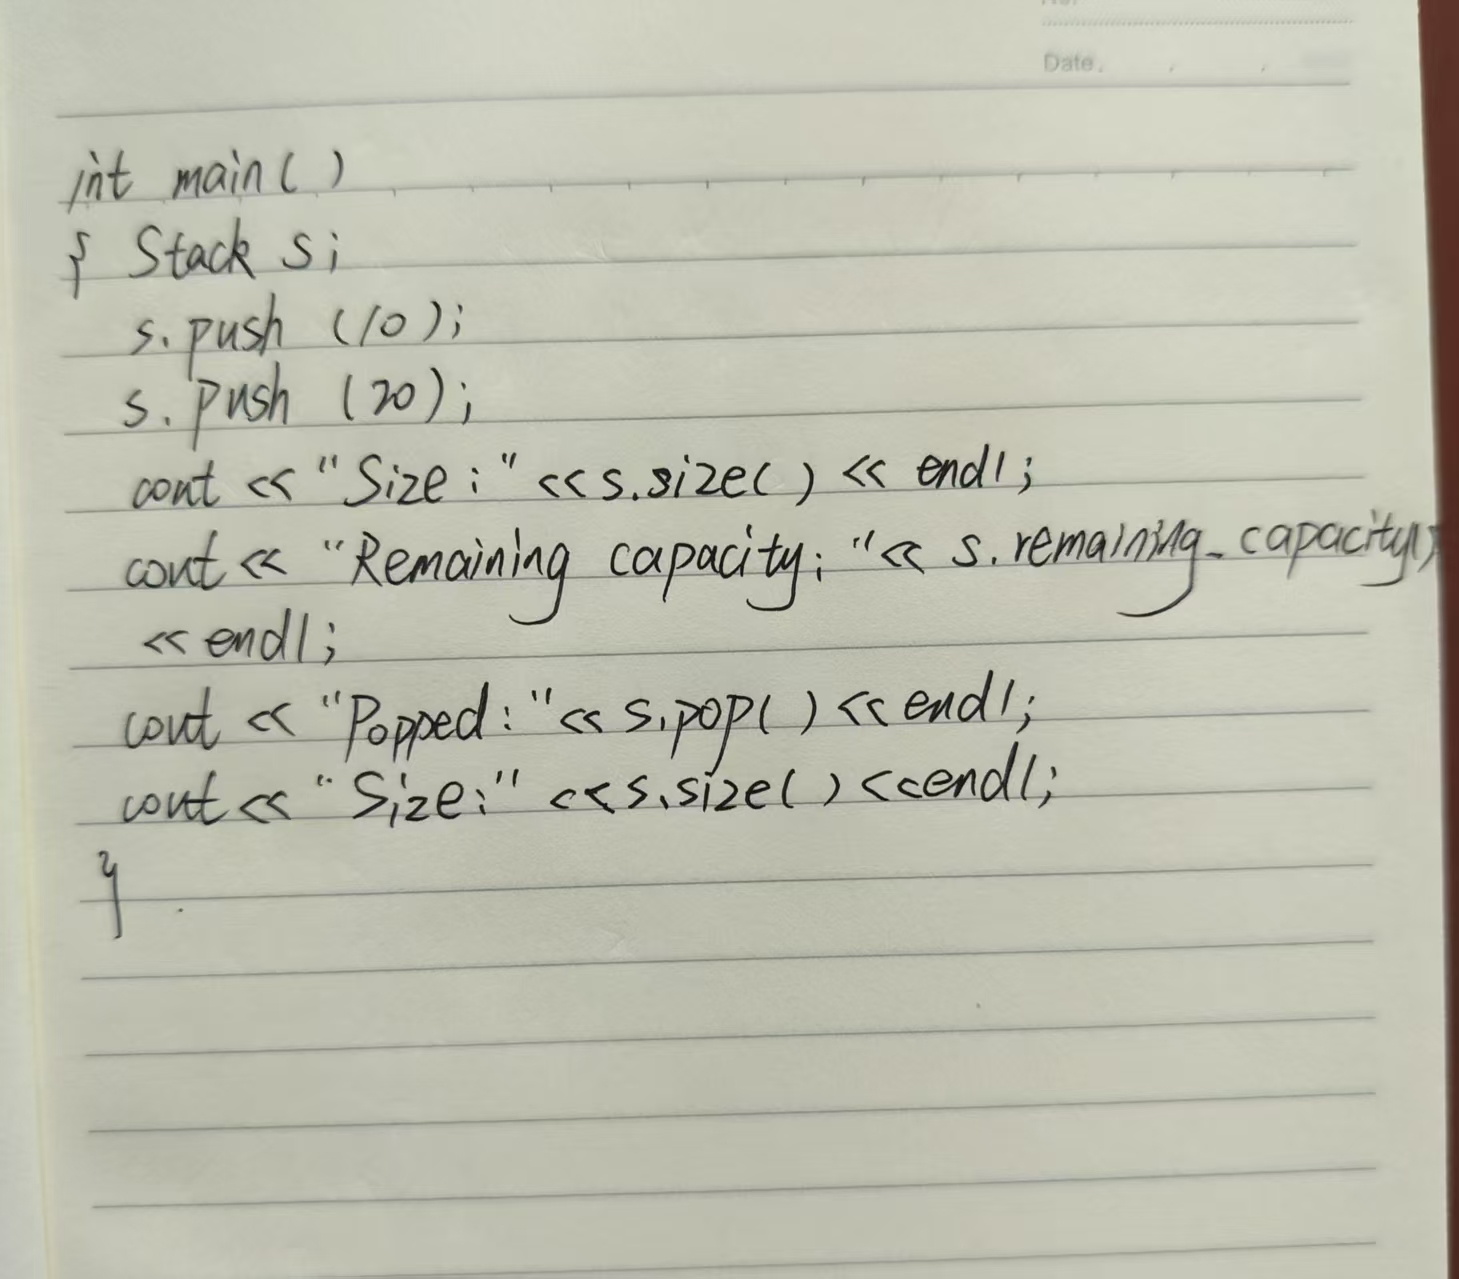 Date.
int main()
{ Stack s;
s.push (10);
s.push (20);
cout << "Size:" << s.size() << endl;
cout << "Remaining capacity: "<< s.remaining_capacity()
<< endl;
cout << "Popped: "<< s.pop() << endl;
cout << "Size:" << s.size() << endl;
}